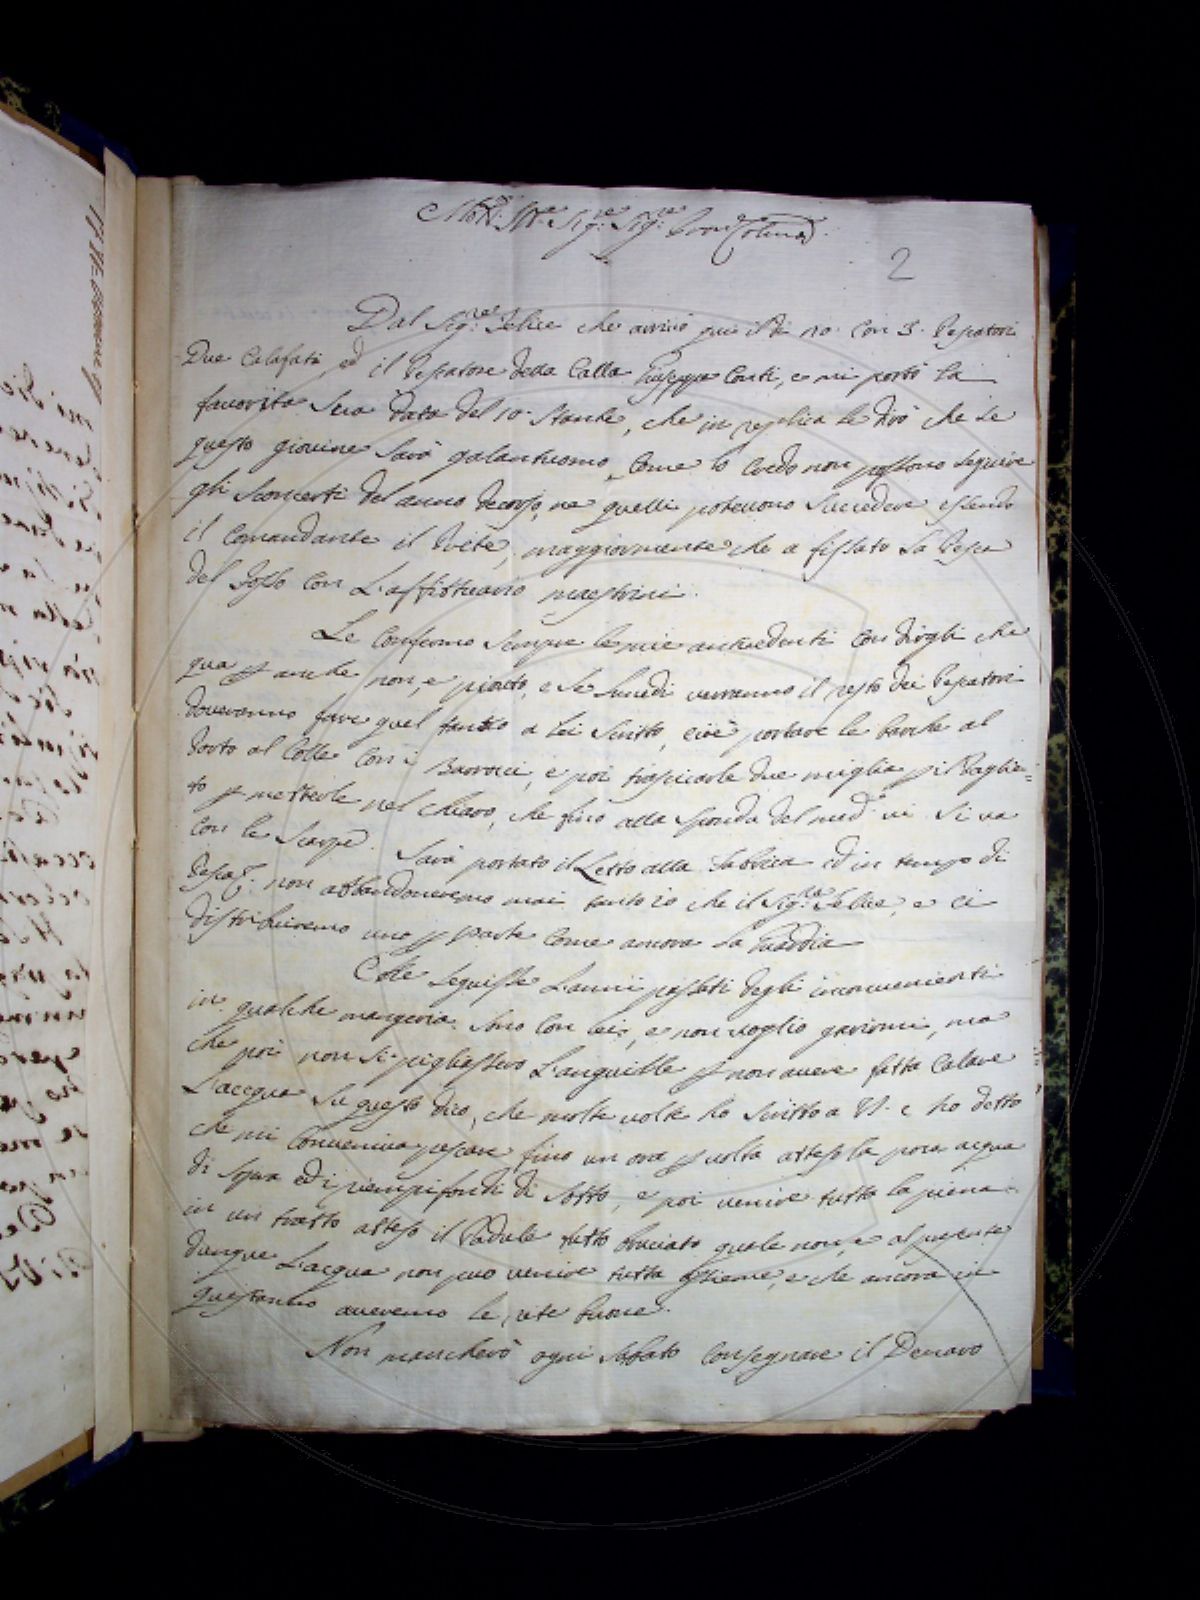 Molt. Ill.re Sig.re Sig.re Pron. Colmo
2
Dal Sig.re Felice che arrivò qui il di 10. con 3. Pescatori
Due Calafati, ed il Pescatore della Calla Giuseppe Conti, e mi portò la
favorita Sua data del 10. Stante, che in replica le dirò che se
questo giovine sarà galantuomo, come lo credo non possono seguire
gli sconcerti del anno decorso, ne quelli potevono succedere essendo
il Comandante il Prete, maggiormente che a fissato la Pesca
del Fosso con L'affittuario maestrini.
Le confermo sempre le mie antecedenti con dirgli che
qua p anche non, e piouto, e se Lunedi verranno il resto dei Pescatori
doveranno fare quel tanto a Lei scritto, cioè portare le barche al
Porto al Colle con i Barrocci, e poi trascicarle due miglia p i Paglie=
to p metterle nel chiaro, che fino alla sponda del med.o vi si va
con le Scarpe. Sarà portato il Letto alla Fabbrica ed in tempo di
Pesca non abbandoneremo mai tanto io che il Sig.re Felice, e ci
distribuiremo uno p parte come ancora la Guardia
Che seguisse L'anni passati degli inconvenienti
in qualche maniera. Sono con lei, e non voglio
che poi non si pigliassero L'anguille p non avere fatta Calare
L'accqua su questo dico, che molte volte ho scritto a VS. e ho detto
che mi conveniva pescare fino un ora p volta atteso la poca acqua
di sopra ed i piempifondi di sotto, e poi venire tutta la piena
in un tratto atteso il Padule tutto bruciato quale non, e al presente
dunque L'acqua non puo venire tutta assieme, e che ancora in
quest'anno averemo le rete buone.
Non mancherò ogni Sabato consegnare il Denaro